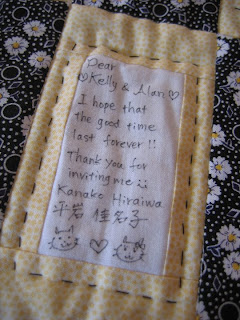 Dear
♡Kelly & Alan♡
I hope that
the good time
last forever!!
Thank you for
inviting me :)
Kanako Hiraiwa
平岩 佳名子